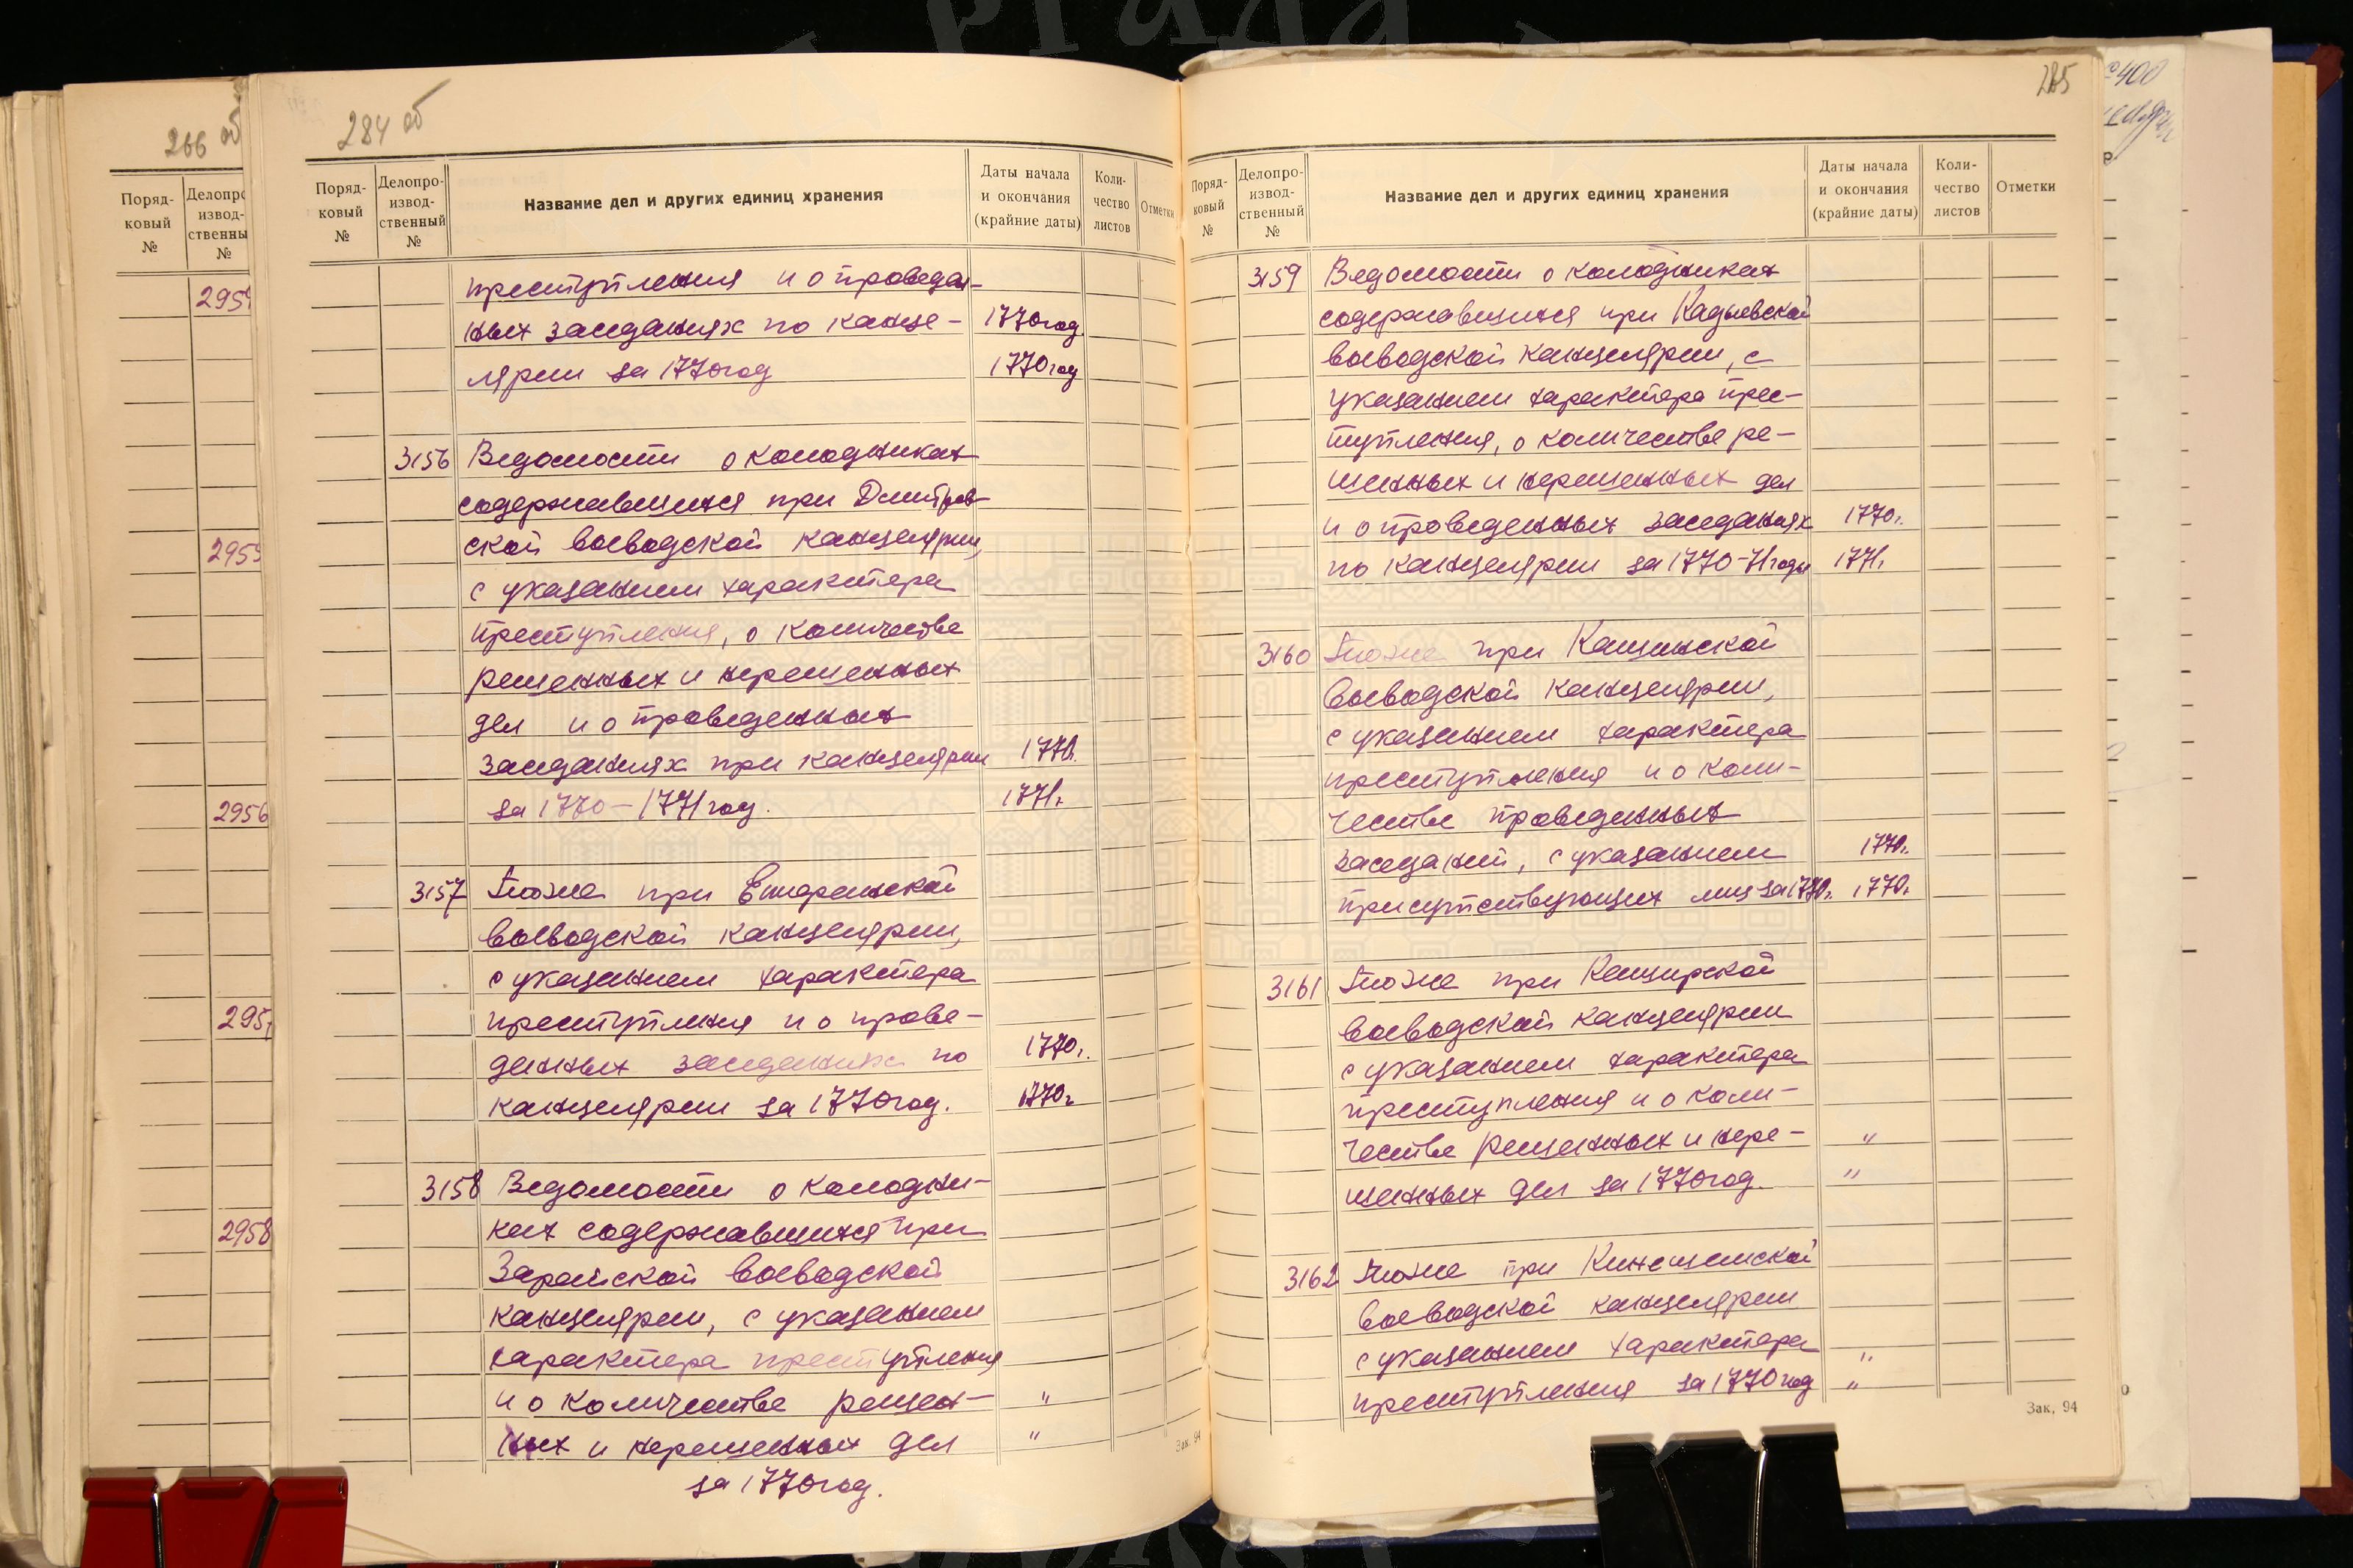 266 об
Поряд-
ковый
№
Делопро
извод-
ственны
№
2955
2956
2958
284 об
Поряд-
ковый
№
Делопро-
извод-
ственный
№
Название дел и других единиц хранения
Даты начала
и окончания
(крайние даты)
Коли-
чество
листов
Отметки
преступления и о проведен-
ных заседаниях по канце- 1770год.
лярии за 1770год 1770год
3156 Ведомости о колодниках
содержавшихся при Дмитров-
ской воеводской канцелярии,
с указанием характера
преступления, о количестве
решенных и нерешенных
дел и о проведенных
заседаниях при канцелярии 1770г.
за 1770-1771год. 1771г.
3157 То же при Епифанской
воеводской канцелярии,
с указанием характера
преступления и о прове-
денных заседаниях по 1770г.
канцелярии за 1770год. 1770г
3158 Ведомости о колодни-
ках содержавшихся при
Зарайской воеводской
канцелярии, с указанием
характера преступления
и о количестве решен- "
ных и нерешенных дел "
за 1770год.
Зак. 94
285
Поряд-
ковый
№
Делопро-
извод-
ственный
№
Название дел и других единиц хранения
Даты начала
и окончания
(крайние даты)
Коли-
чество
листов
Отметки
3159 Ведомости о колодниках
содержавшихся при Кадыевской
воеводской канцелярии, с
указанием характера прес-
тупления, о количестве ре-
шенных и нерешенных дел
и о проведенных заседаниях 1770г.
по канцелярии за 1770-71годы 1771г.
3160 То же при Кашинской
воеводской канцелярии,
с указанием характера
преступления и о коли-
честве проведенных
заседаний, с указанием 1770г.
присутствующих лиц за 1770г. 1770г.
3161 То же при Каширской
воеводской канцелярии
с указанием характера
преступления и о коли-
честве решенных и нере- "
шенных дел за 1770год. "
3162 То же при Кинешемской
воеводской канцелярии
с указанием характера "
преступления за 1770год "
Зак. 94